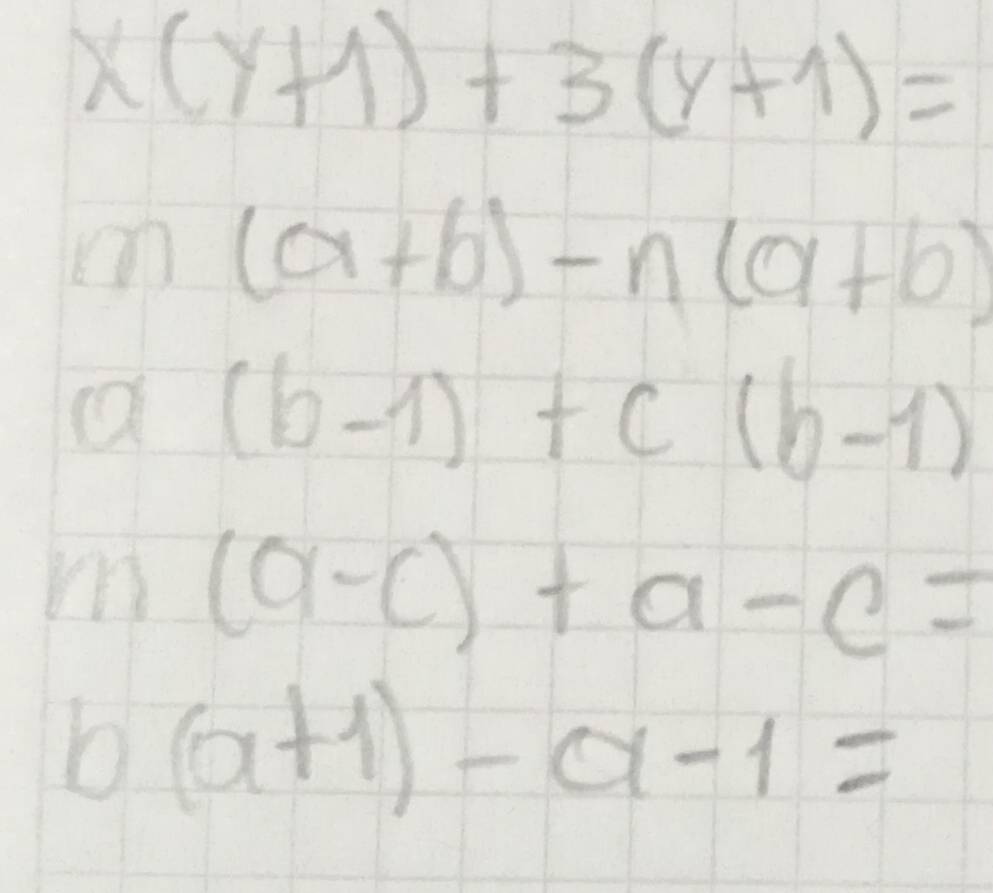 x(y+1)+3(y+1)=
m(a+b)-n(a+b)
a(b-1)+c(b-1)
m(a-c)+a-c=
b(a+1)-a-1=